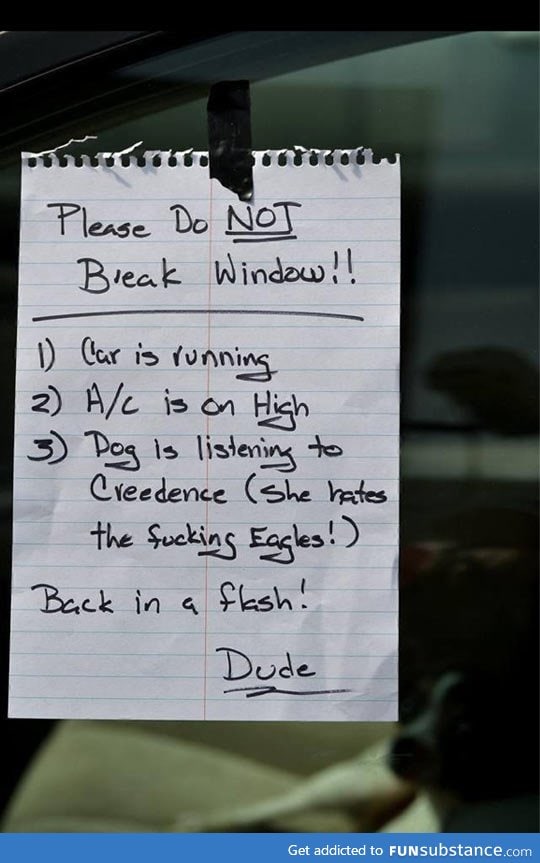 Please Do NOT
Break Window!!
1) Car is running
2) A/C is on High
3) Dog is listening to
Creedence (She hates
the fucking Eagles!)
Back in a flash!
Dude
Get addicted to FUNSUbstance.com